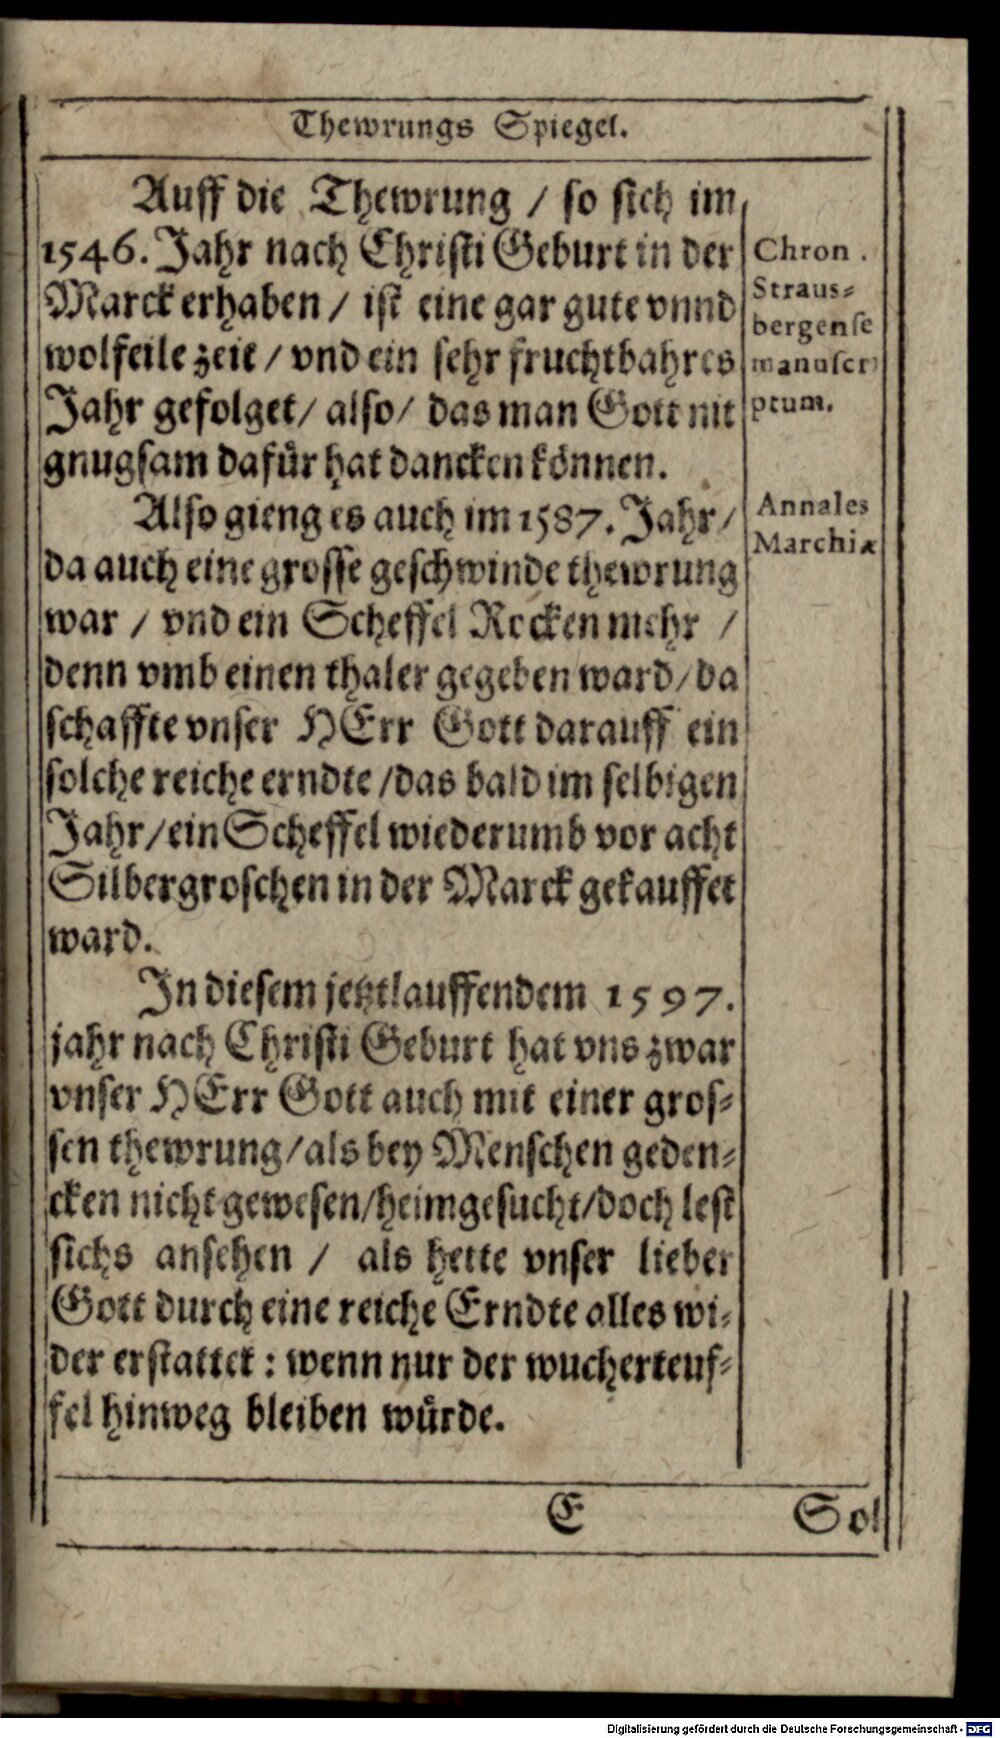 Thewrungs Spiegel.
Auff die Thewrung / so sich im
1546. Jahr nach Christi Geburt in der
Marck erhaben / ist eine gar gute vnnd
wolfeile zeit / vnd ein sehr fruchtbahres
Jahr gefolget/ also/ das man Gott nit
gnugsam dafür hat dancken können.
Chron.
Straus-
bergense
manuscri
ptum.
Also gieng es auch im 1587. Jahr /
da auch eine grosse geschwinde thewrung
war / vnd ein Scheffel Rocken mehr /
denn vmb einen thaler gegeben ward/ da
schaffte vnser HErr Gott darauff ein
solche reiche erndte /das bald im selbigen
Jahr/ein Scheffel wiederumb vor acht
Silbergroschen in der Marck gekauffet
ward.
Annales
Marchiæ
In diesem jetztlauffendem 1597.
jahr nach Christi Geburt hat vns zwar
vnser HErr Gott auch mit einer gros-
sen thewrung/als bey Menschen geden-
cken nicht gewesen/heimgesucht/doch lest
sichs ansehen / als hette vnser lieber
Gott durch eine reiche Erndte alles wi-
der erstattet : wenn nur der wucherteuf-
fel hinweg bleiben würde.
E Sol
Digitalisierung gefördert durch die Deutsche Forschungsgemeinschaft - DFG